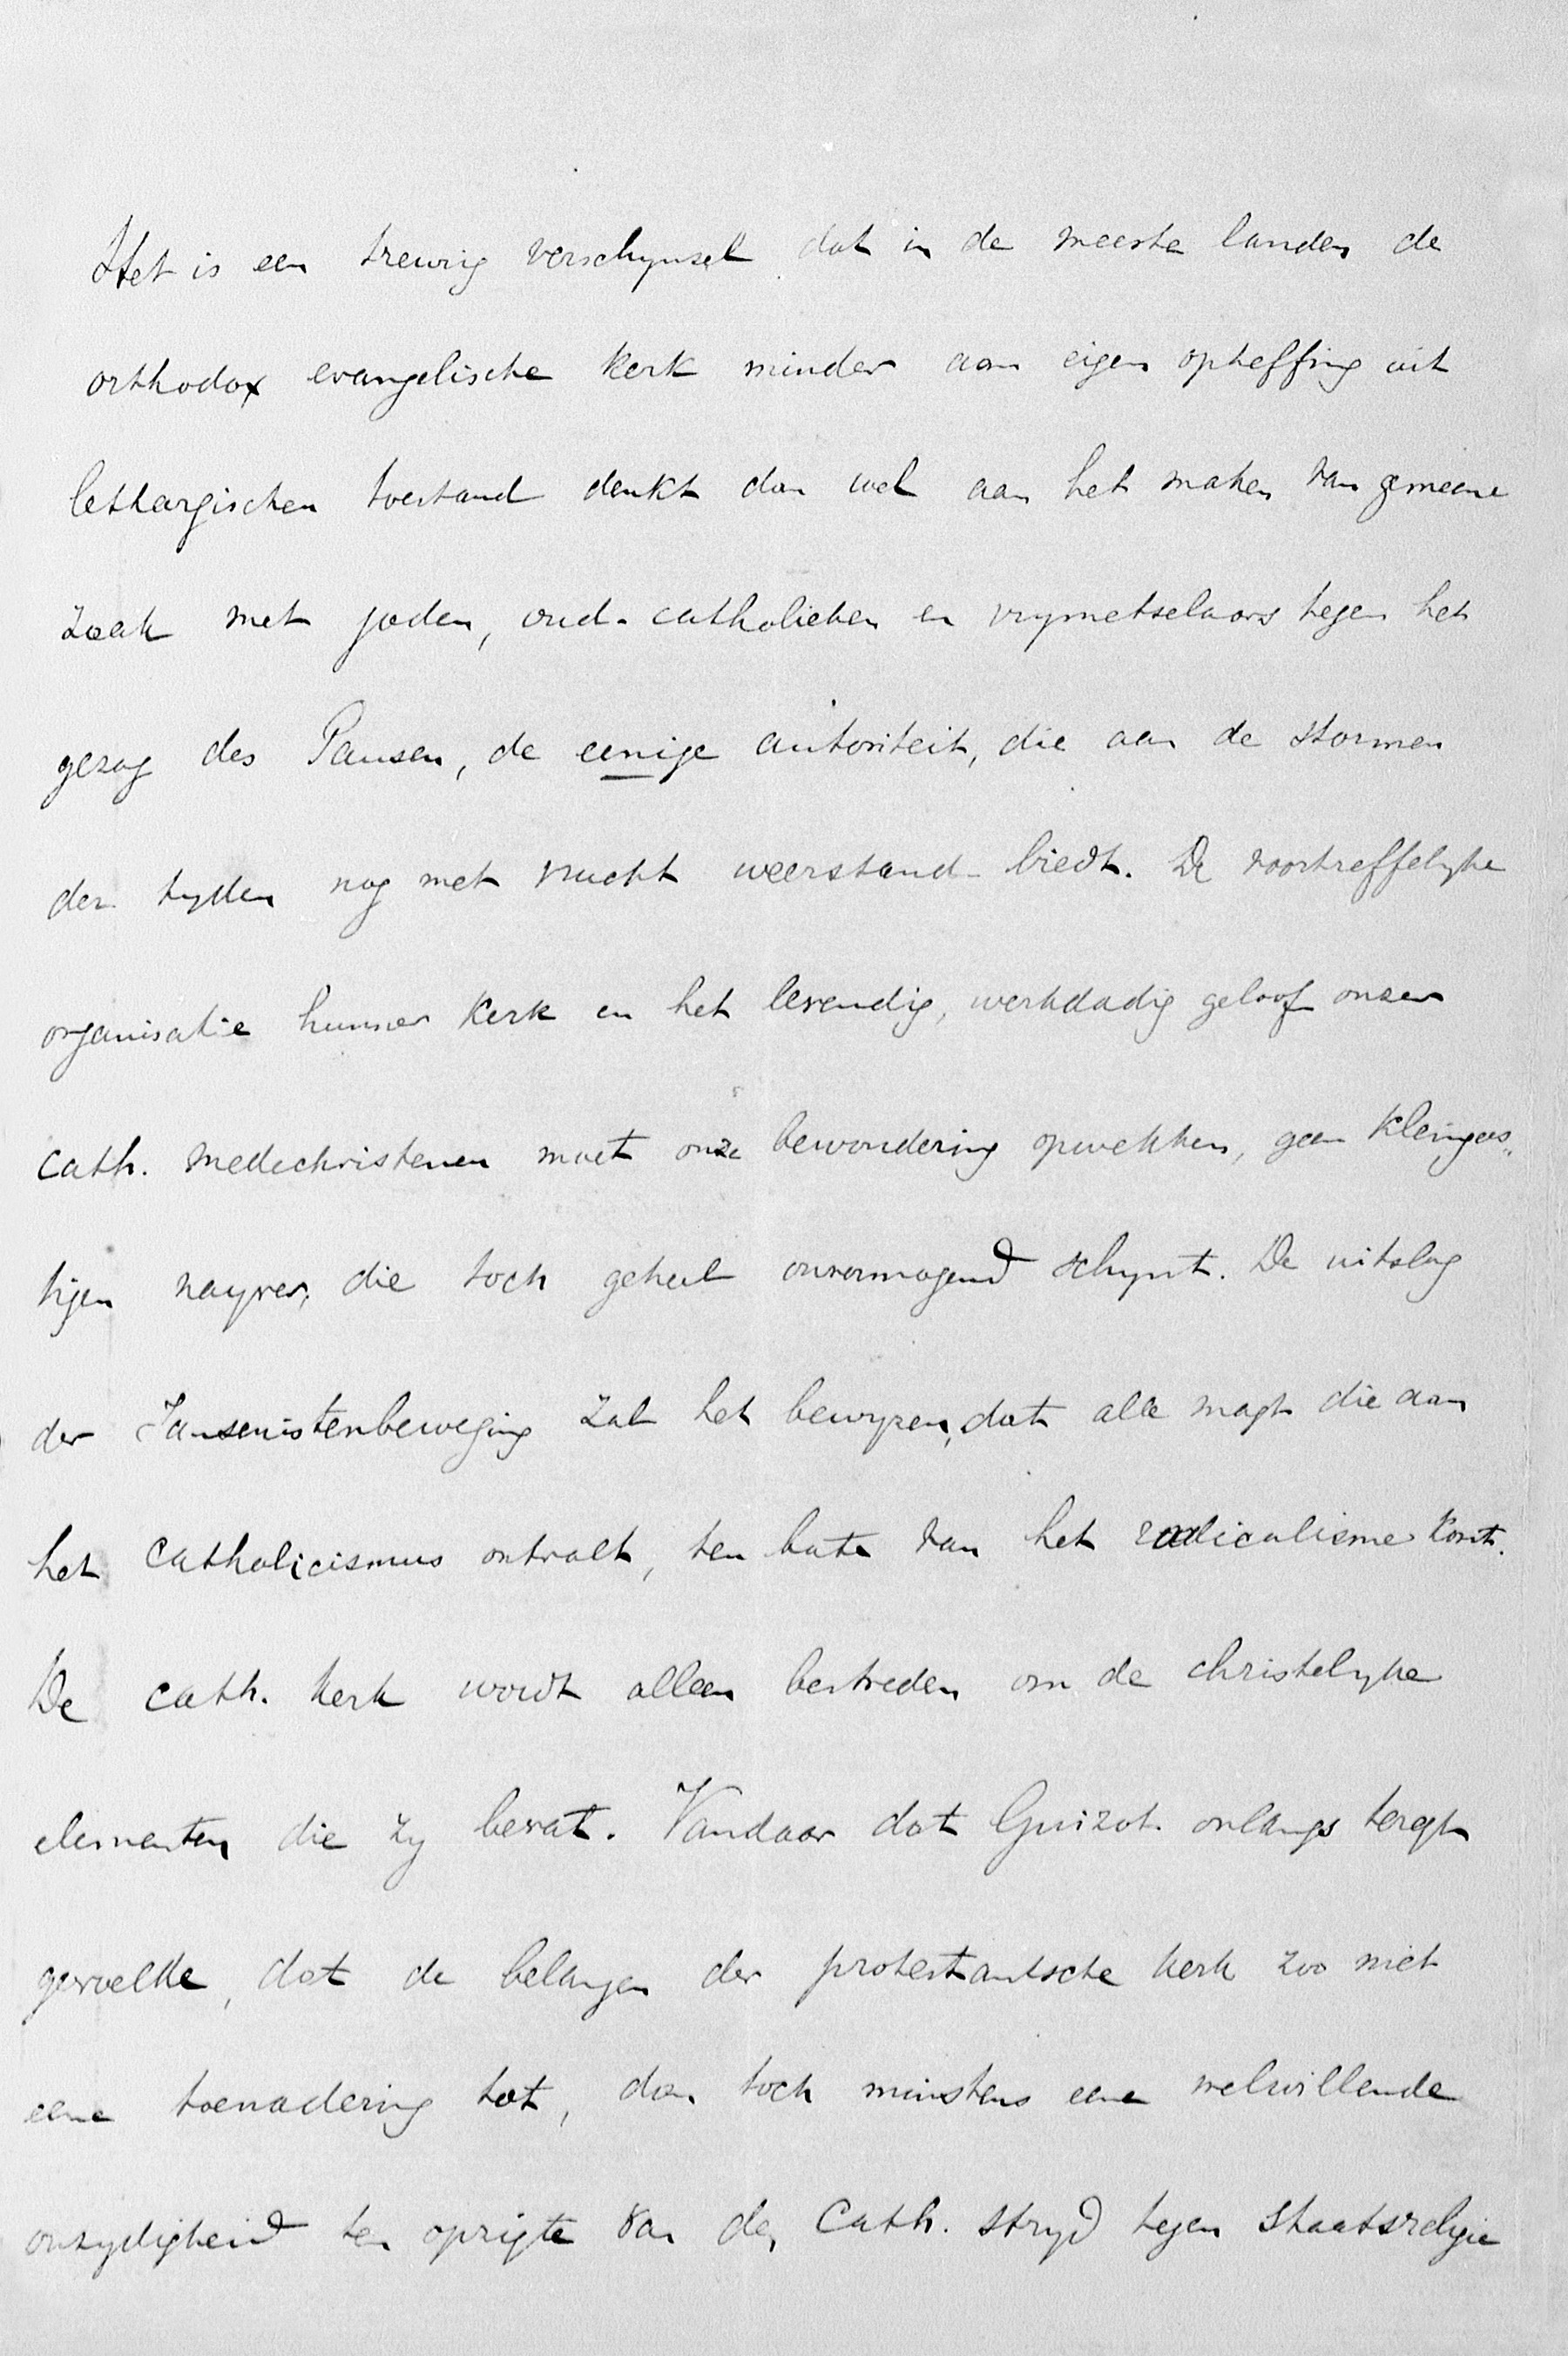 Het is een treurig verschynsel dat in de meeste landen de
orthodox evangelische kerk minder aan eigen opheffing uit
lethargischen toestand denkt dan wel aan het maken van gemeene
zaak met joden, oud-catholieken en vrymetselaars tegen het
gezag des Pausen, de eenige autoriteit, die aan de stormen
der tyden nog met vrucht weerstand biedt. De voortreffelyke
organisatie hunner kerk en het levendig, werkdadig geloof onzer
cath. medechristenen moet onze bewondering opwekken, geen kleingees„
tigen nayver, die toch geheel onvermogend schynt. De uitslag
der Jansenistenbeweging zal het bewyzen, dat alle magt die aan
het Catholicismus ontvalt, ten bate van het radicalisme komt.
De cath. kerk wordt alleen bestreden om de christelyke
elementen die zy bevat. Vandaar dat Guizot onlangs teregt
gevoelde, dat de belangen der protestantsche kerk zoo niet
eene toenadering tot, dan toch minstens eene welwillende
onzydigheid ten opzigte van den Cath. stryd tegen Staatsreligie